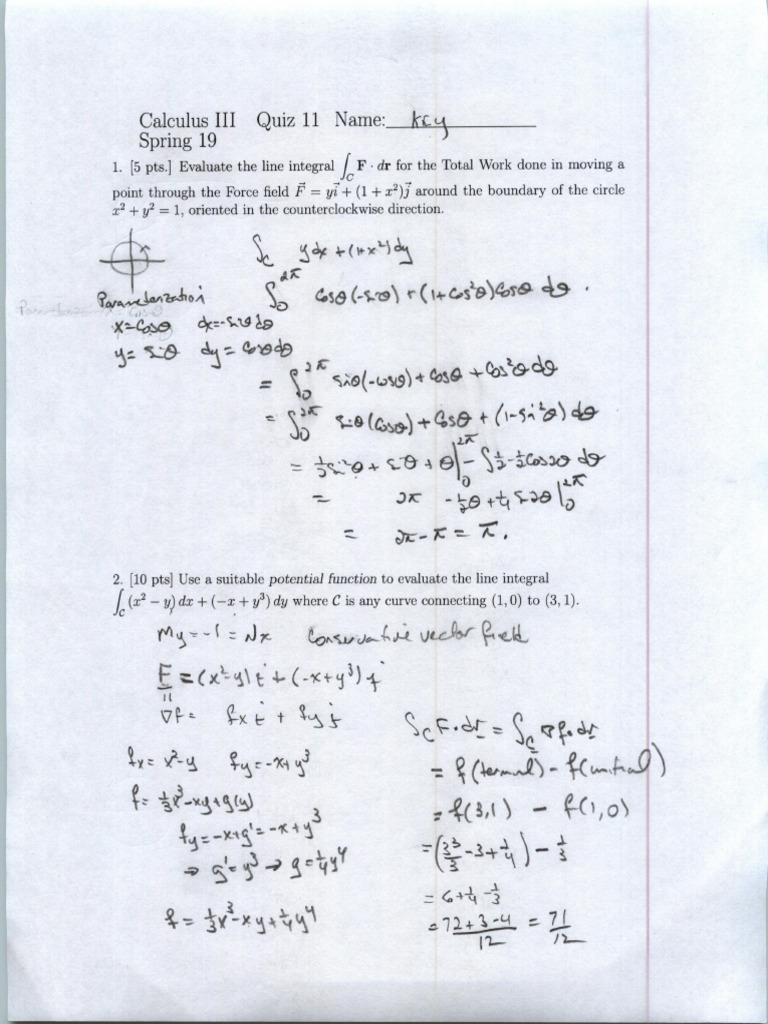 Calculus III Quiz 11 Name: key
Spring 19
1. [5 pts.] Evaluate the line integral ∫_C F · dr for the Total Work done in moving a
point through the Force field F⃗ = yi⃗ + (1 + x²)j⃗ around the boundary of the circle
x² + y² = 1, oriented in the counterclockwise direction.
∫_C ydx + (1+x²)dy
Parameterization
x=cosθ dx=-sinθdθ
y= sinθ dy= cosθdθ
∫_0^2π cosθ(-sinθ) + (1+cos²θ)cosθ dθ.
= ∫_0^2π sinθ(-cosθ) + cosθ + cos²θ dθ
= ∫_0^2π sinθ(cosθ) + cosθ + (1-sin²θ) dθ
= ½sin²θ + sinθ + θ|_0^2π - ∫½-½cos2θ dθ
= 2π -½θ+¼sin2θ|_0^2π
= 2π-π = π.
2. [10 pts] Use a suitable potential function to evaluate the line integral
∫_C (x² − y) dx + (−x + y³) dy where C is any curve connecting (1, 0) to (3, 1).
My=-1=Nx Conservative vector field
F = (x²-y)i + (-x+y³)j
||
∇f = fx i + fy j
fx= x²-y fy=-x+y³
f= ⅓x³-xy+g(y)
fy=-x+g'=-x+y³
⇒ g'=y³ → g=¼y⁴
f= ⅓x³-xy+¼y⁴
∫_C F·dr = ∫_C ∇f·dr
= f(terminal) - f(initial)
= f(3,1) - f(1,0)
=(3³/3 -3+¼) - ⅓
= 6+¼-⅓
= 72+3-4/12 = 71/12